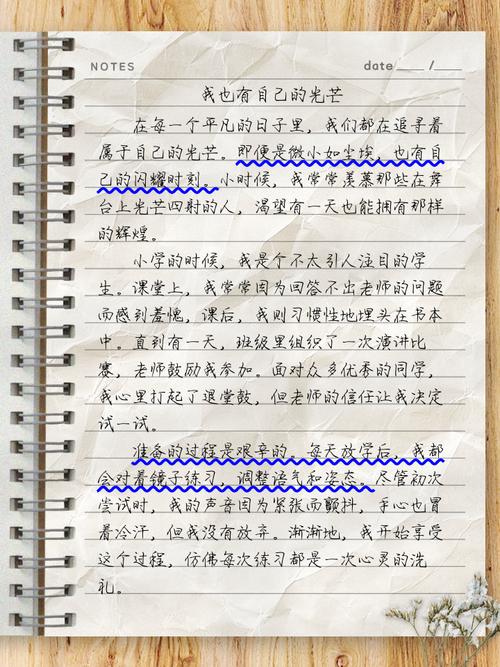 NOTES
date ____ / ____
我也有自己的光芒
在每一个平凡的日子里，我们都在追寻着
属于自己的光芒。即便是微小如尘埃，也有自
己的闪耀时刻。小时候，我常常羡慕那些在舞
台上光芒四射的人，渴望有一天也能拥有那样
的辉煌。
小学的时候，我是个不太引人注目的学
生。课堂上，我常常因为回答不出老师的问题
而感到羞愧，课后，我则习惯性地埋头在书本
中。直到有一天，班级里组织了一次演讲比
赛，老师鼓励我参加。面对众多优秀的同学，
我心里打起了退堂鼓，但老师的信任让我决定
试一试。
准备的过程是艰辛的。每天放学后，我都
会对着镜子练习，调整语气和姿态。尽管初次
尝试时，我的声音因为紧张而颤抖，手心也冒
着冷汗，但我没有放弃。渐渐地，我开始享受
这个过程，仿佛每次练习都是一次心灵的洗
礼。